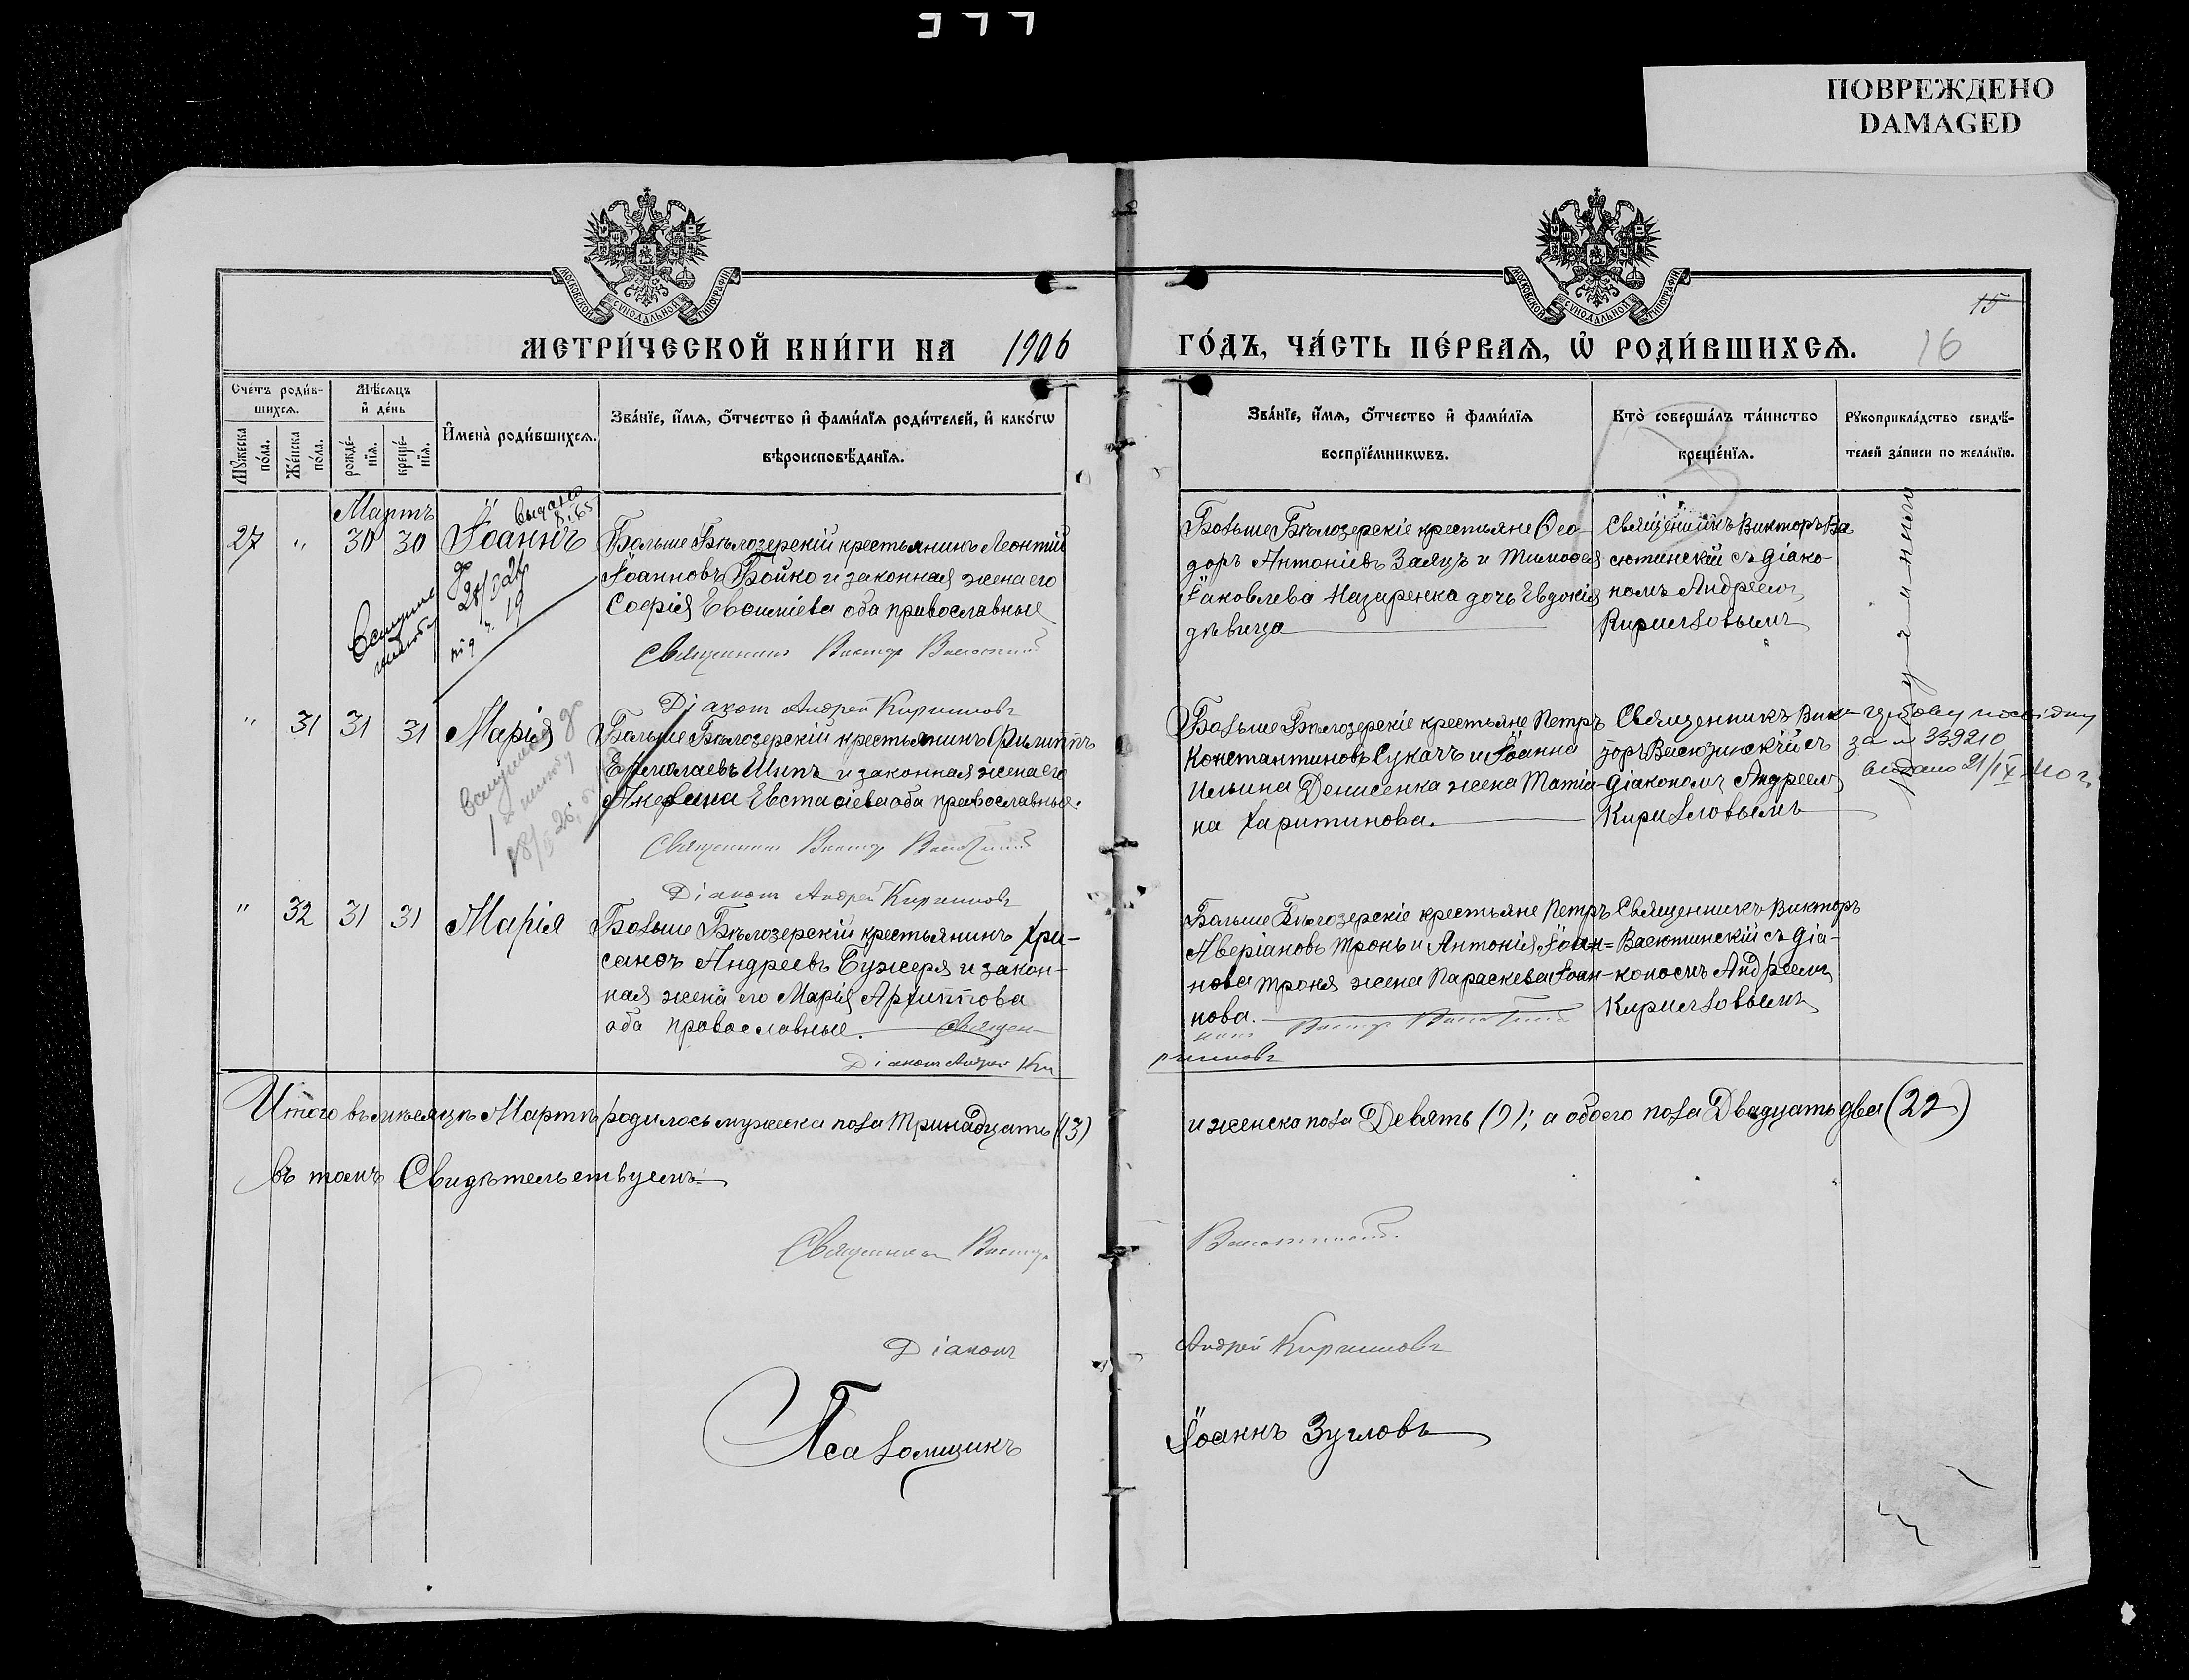 377
ПОВРЕЖДЕНО
DAMAGED
МОСКОВСКОЙ СѴНОДАЛЬНОЙ ТИПОГРАФІИ
МОСКОВСКОЙ СѴНОДАЛЬНОЙ ТИПОГРАФІИ
15
МЕТРИ́ЧЕСКОЙ КНИ́ГИ НА 1906 ГО́ДЪ, ЧА́СТЬ ПЕ́РВАѦ, Ѡ РОДИ́ВШИХСѦ. 16
Сче́тъ роди́в-
шихсѧ.
Мꙋжеска по́ла.
Же́нска по́ла.
Мѣ́сѧцъ
и҆ де́нь
рожде́-
нїѧ.
креще́-
нїѧ.
И҆мена̀ роди́вшихсѧ.
Зва́нїе, и҆́мѧ, ѻ҆́тчество и҆ фами́лїѧ роди́телей, и҆ како́гѡ
вѣроисповѣ́данїѧ.
Зва́нїе, и҆́мѧ, ѻ҆́тчество и҆ фами́лїѧ
воспрїе́мникѡвъ.
Кто̀ соверша́лъ та́инство
креще́нїѧ.
Рꙋкоприкла́дство свидѣ́-
телей за́писи по жела́нїю.
Мартъ
27 " 30 30 Іоаннъ
Больше Бѣлозерскій крестьянинъ Леонтій
Іоанновъ Бойко и законная жена его
Софія Евфиміева оба православные
Священникъ Викторъ Васютинскій
Діаконъ Андрей Кирилловъ
Больше Бѣлозерскіе крестьяне Ѳео-
доръ Антоніевъ Заяцъ и Тимоѳея
Іаковлева Назаренка дочь Евдокія
дѣвица
Священникъ Викторъ Ва
сютинскій съ діако-
номъ Андреемъ
Кирилловымъ
" 31 31 31 Марія
Больше Бѣлозерскій крестьянинъ Филиппъ
Ермолаевъ Шипъ и законная жена его
Ангелина Евстаѳіева оба православные.
Священникъ Викторъ Васютинскій
Діаконъ Андрей Кирилловъ
Больше Бѣлозерскіе крестьяне Петръ
Константиновъ Сукачъ и Іоанна
Ильина Денисенка жена Татіа-
на Харитинова.
Священникъ Вик-
торъ Васютинскій съ
діакономъ Андреемъ
Кирилловымъ
за № 339210
видано 21/IX 40 г.
" 32 31 31 Марія
Больше Бѣлозерскій крестьянинъ Хри-
санѳъ Андреевъ Бужеря и закон-
ная жена его Марія Архиппова
оба православные. Священ-
Діаконъ Андрей Ки
Больше Бѣлозерскіе крестьяне Петръ
Аверіановъ Тронь и Антонія Іоан=
нова Троня жена Параскева Іоан-
нова.
никъ Викторъ Васютинскій
рилловъ
Священникъ Викторъ
Васютинскій съ діа-
кономъ Андреемъ
Кирилловымъ
Итого въ мѣсяцѣ Мартѣ родилось мужска пола Тринадцать (13) и женска пола Девять (9); а обоего пола Двадцать два (22)
въ томъ Свидѣтельствуемъ:
Священникъ Викторъ Васютинскій.
Діаконъ Андрей Кирилловъ
Псаломщикъ Іоаннъ Зугловъ